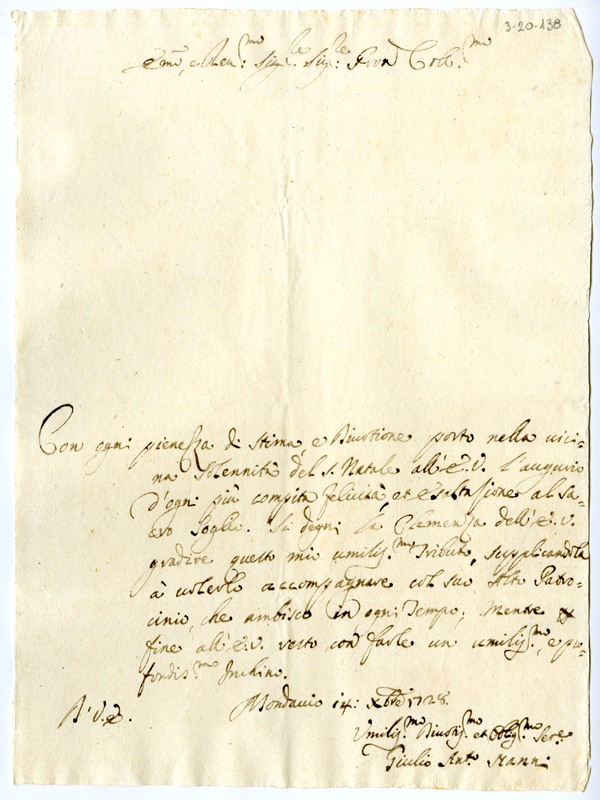 3-20-138
Em.mo, e Rev.mo Sig.re Sig.re Pron Coll.mo
Con ogni pienezza di stima, e Divotione porto nella vici-
na Solennità del S. Natale all'E.V. l'augurio
d'ogni più compita felicità, et Esaltazione al Sa-
cro Soglio. Si degni la Clemenza dell'E.V.
gradire questo mio umiliss.mo Tributo, supplicandola
à volerlo accompagnare col suo Alto Patro-
cinio, che ambisco in ogni Tempo; Mentre
fine all'E.V. resto con farle un umiliss.mo, e pro-
fondiss.mo Inchino.
Mondavio 14: Xbre 1728.
D. V. E.
Umiliss.mo Divotiss.mo et Oblig.mo Ser.e
Giulio Ant.o